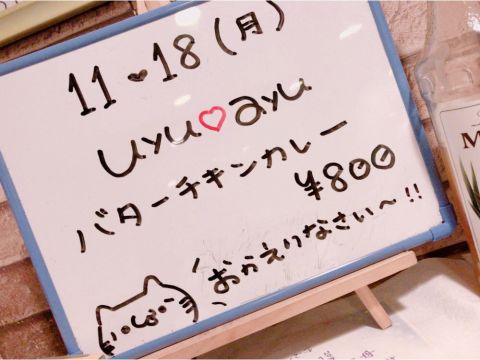 11♥18(月)
uyu♡ayu
バターチキンカレー
¥800
おかえりなさい〜!!